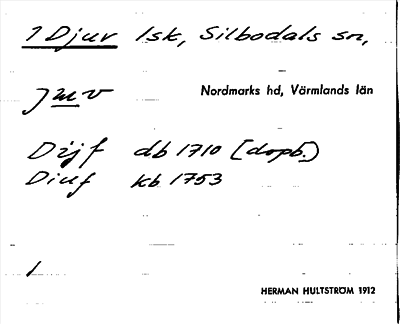 1 Djuv lsk, Silbodals sn,
jmv Nordmarks hd, Värmlands län
Dijf db 1710 [dopb.)
Diuf kb 1753
1
HERMAN HULTSTRÖM 1912